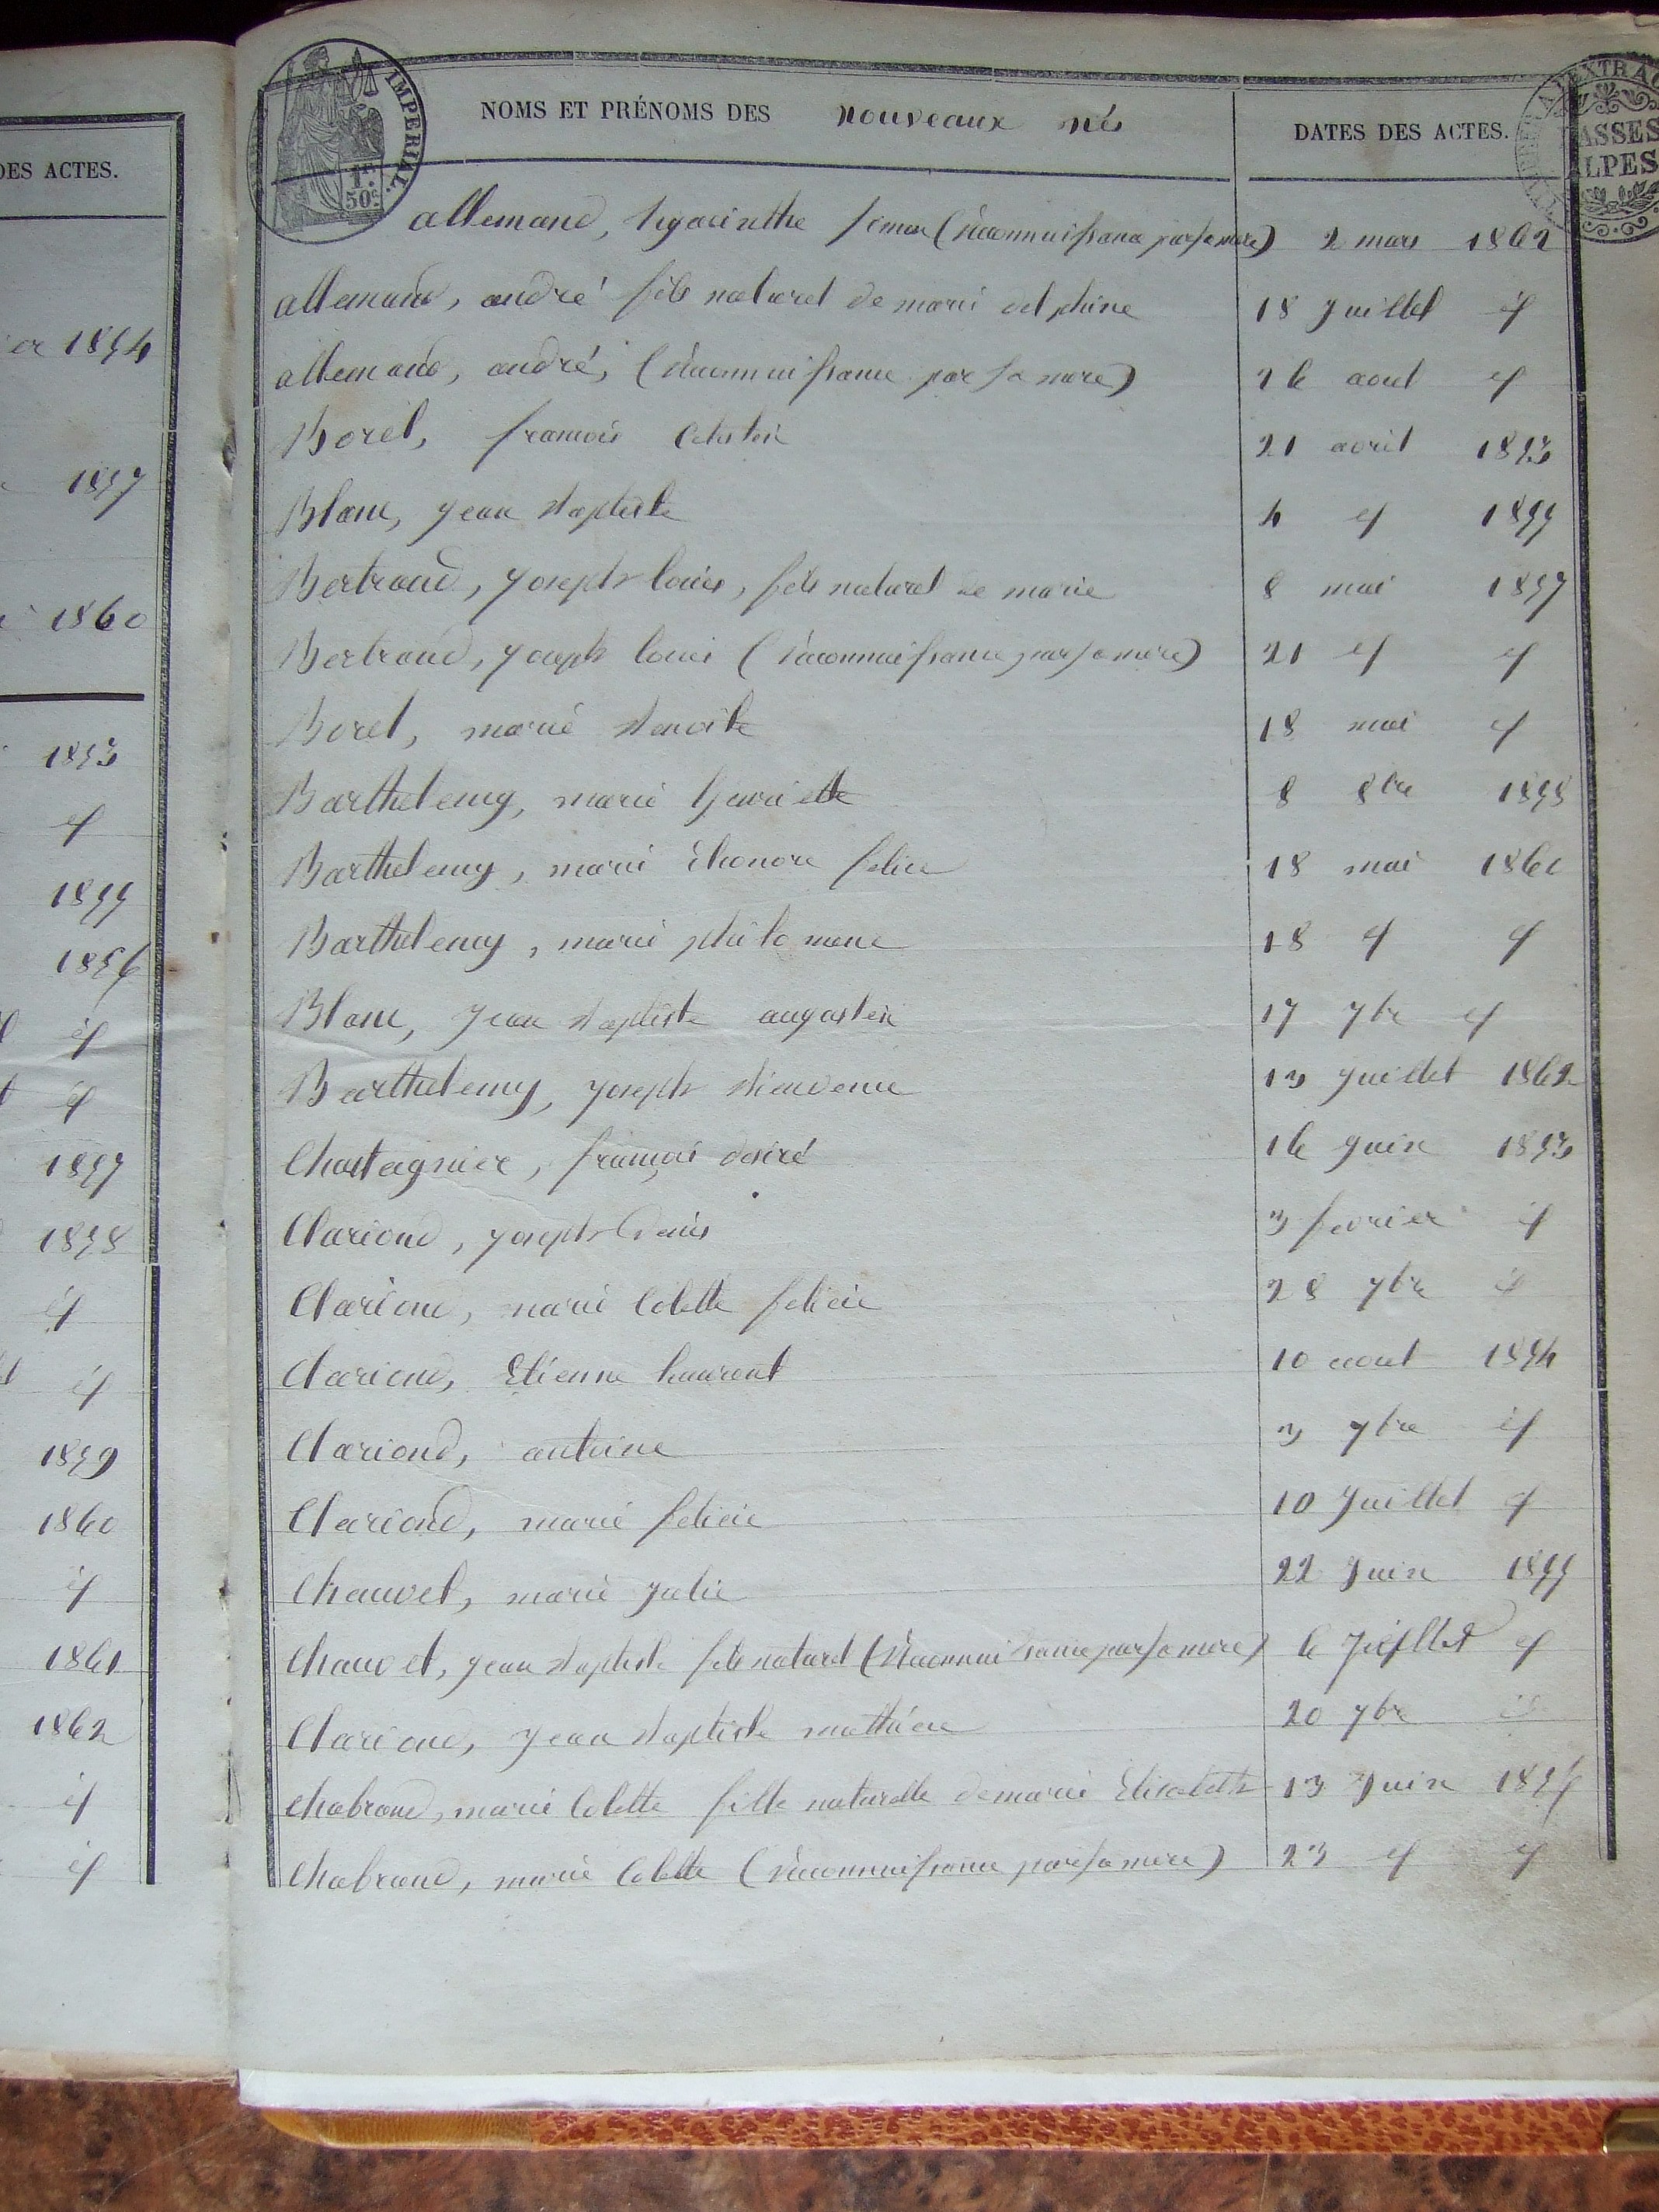 DES ACTES.
1854
1857
1860
1853
id
1855
1856
id
id
1857
1858
id
id
1859
1860
id
1861
1862
id
id
IMPERIAL.
1F.
50C.
EXTRA
BASSES
ALPES
NOMS ET PRÉNOMS DES nouveaux nés DATES DES ACTES.
allemand, hyacinthe (reconnaissance par sa mere) 2 mars 1862
allemand, andré fils naturel de marie delphine 18 Juillet id
allemand, andré, (reconnaissance par sa mere) 26 aout id
Borel, francois celestin 21 avril 1853
Blanc, Jean baptiste 4 id 1855
Bertrand, Joseph louis, fils naturel de marie 8 mai 1857
Bertrand, Joseph louis (reconnaissance par sa mère) 21 id id
Borel, marie benoite 18 mai id
Barthelemy, marie henriette 8 8bre 1858
Barthelemy, marie Eleonore felicie 18 mai 1860
Barthelemy, marie philomene 18 id id
Blanc, Jean baptiste augustin 17 7bre id
Barthelemy, Joseph bienvenu 13 Juillet 1862
Chastaignier, françois desiré 16 Juin 1853
Clariond, Joseph Denis 3 fevrier id
Clariond, marie Colette felicie 28 7bre id
Clariond, Etienne laurent 10 aout 1854
Clariond, antoine 3 7bre id
Clariond, marie felicie 10 Juillet id
Chauvet, marie Julie 22 Juin 1855
Chauvet, Jean baptiste fils naturel (reconnaissance par sa mere) 6 Juillet id
Clariond, Jean baptiste mathieu 20 7bre id
Chabrand, marie Colette fille naturelle de marie Elisabeth 13 Juin 1856
Chabrand, marie Colette (reconnaissance par sa mere) 23 id id